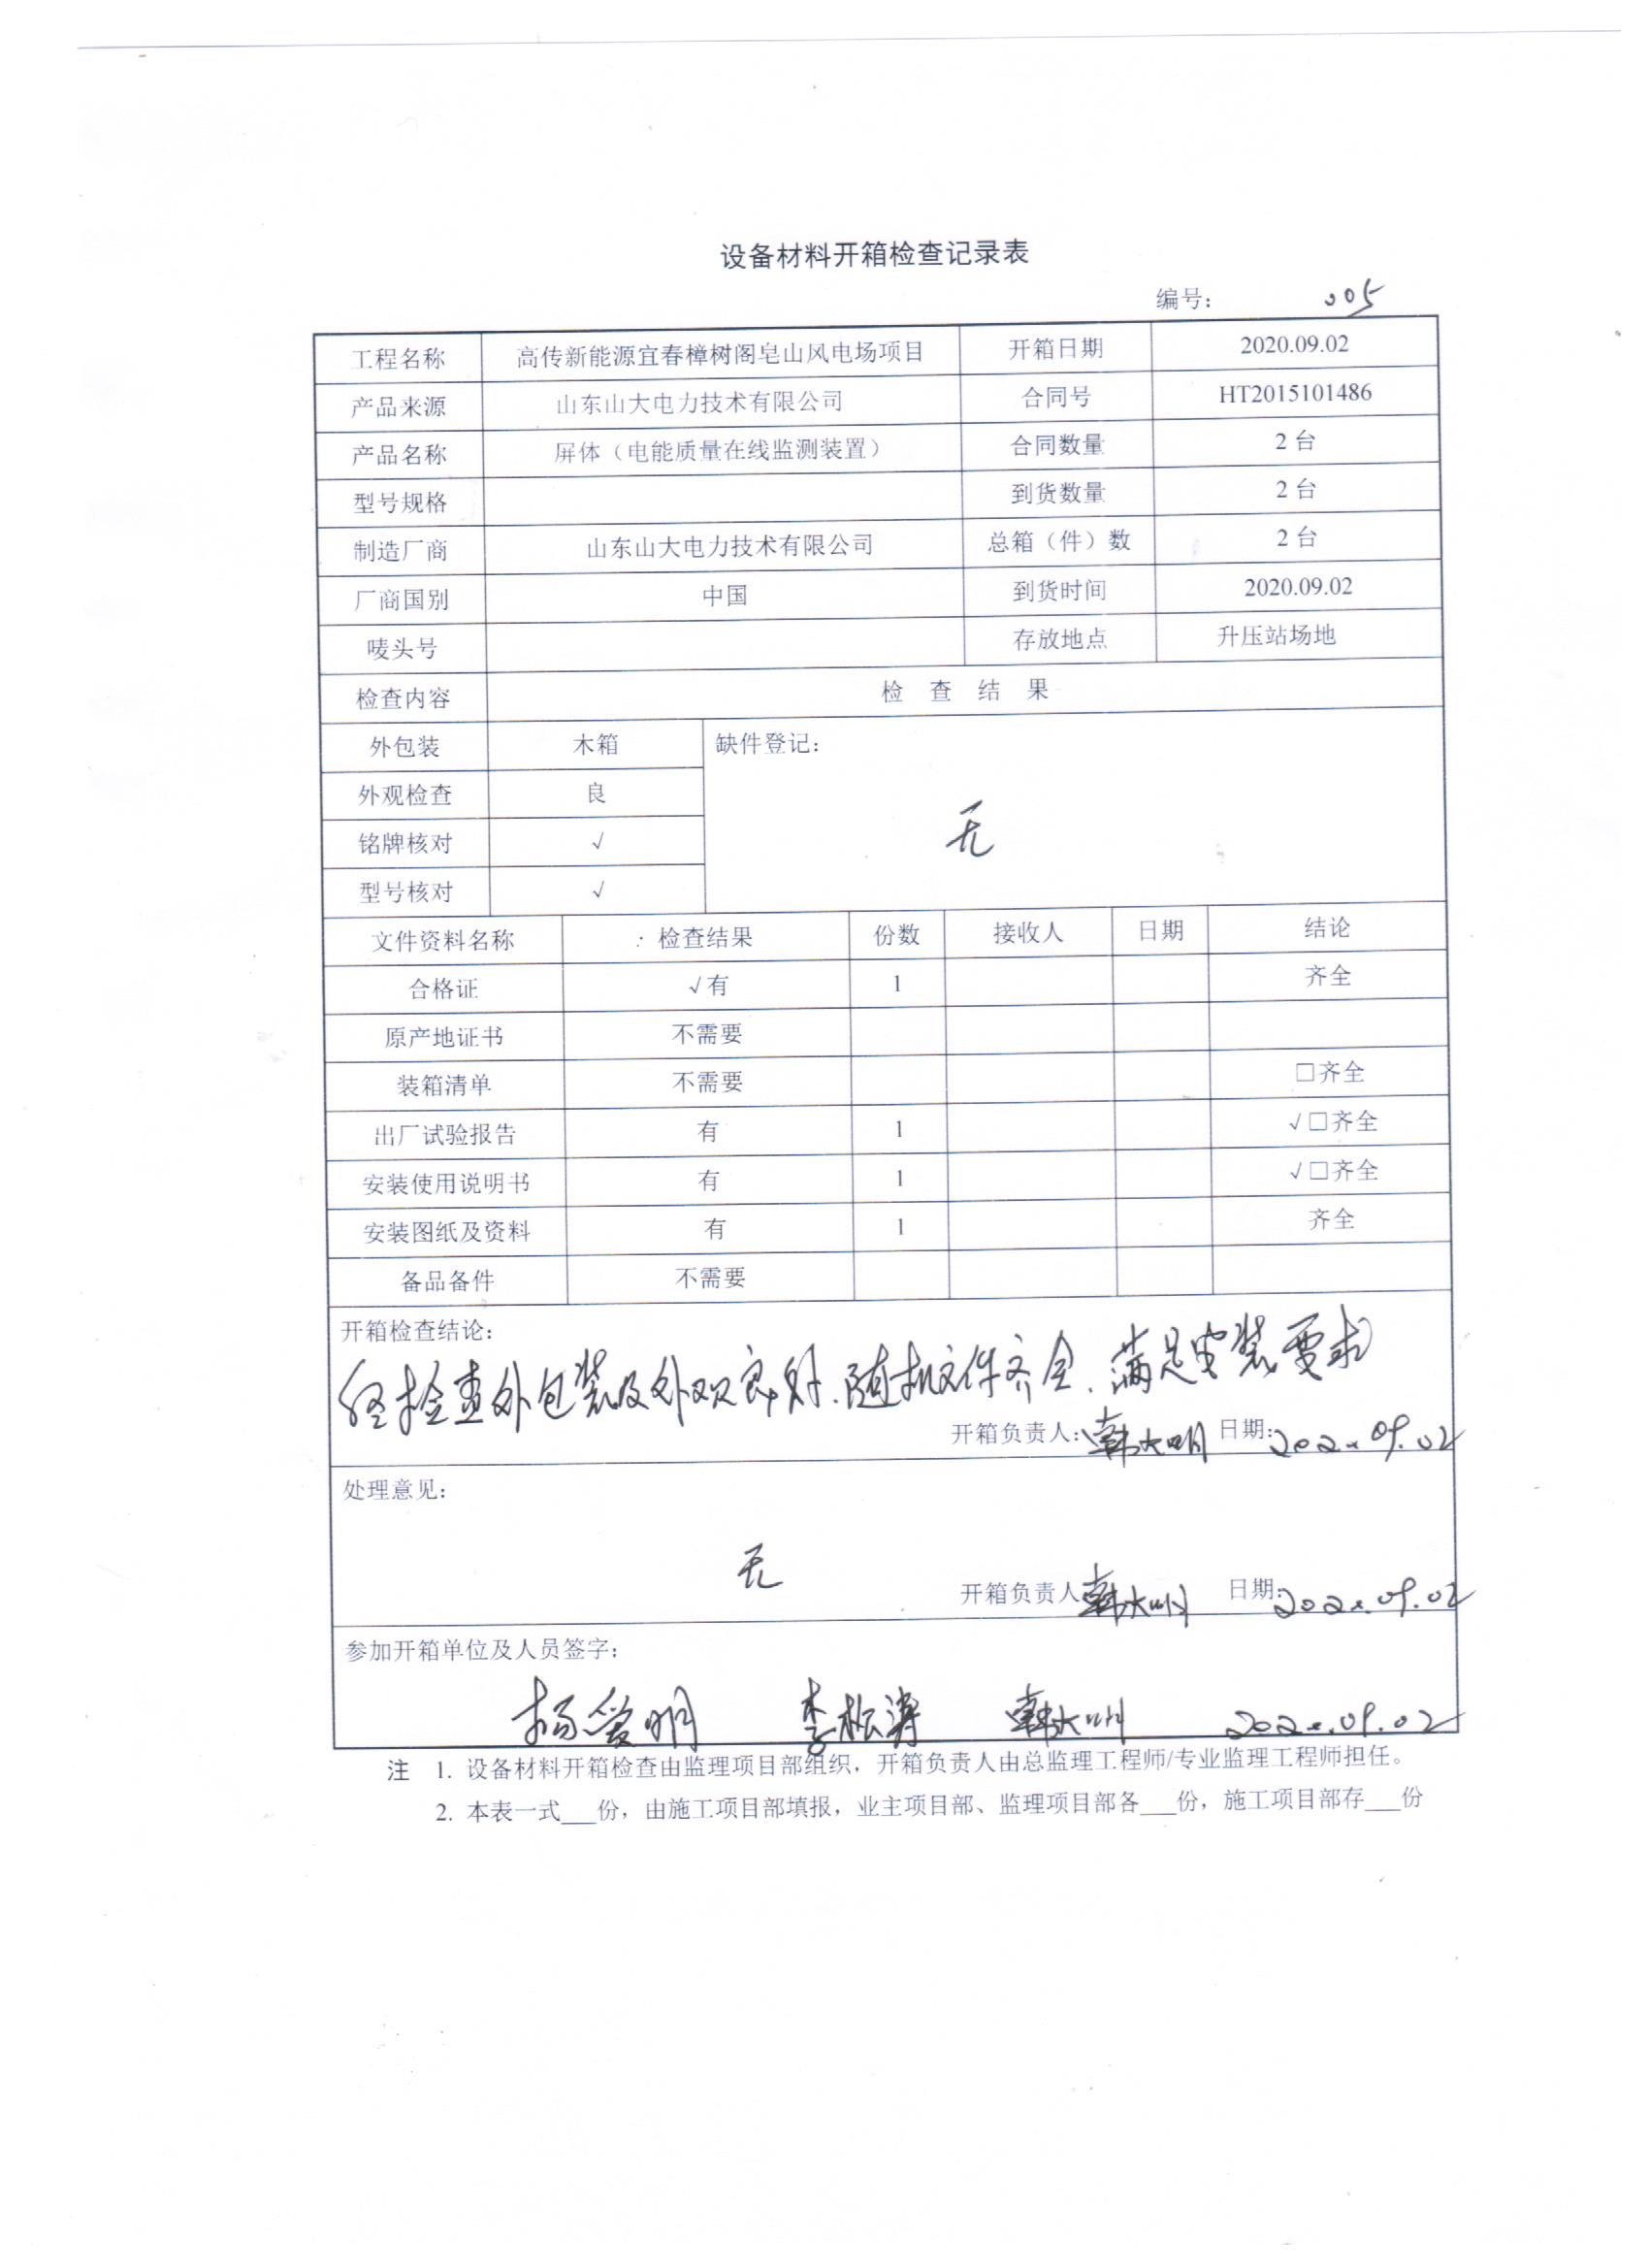 设备材料开箱检查记录表
编号： 005
工程名称 高传新能源宜春樟树阁皂山风电场项目 开箱日期 2020.09.02
产品来源 山东山大电力技术有限公司 合同号 HT2015101486
产品名称 屏体（电能质量在线监测装置） 合同数量 2台
型号规格 到货数量 2台
制造厂商 山东山大电力技术有限公司 总箱（件）数 2台
厂商国别 中国 到货时间 2020.09.02
唛头号 存放地点 升压站场地
检查内容 检 查 结 果
外包装 木箱 缺件登记：
外观检查 良
无
铭牌核对 √
型号核对 √
文件资料名称 检查结果 份数 接收人 日期 结论
合格证 √有 1 齐全
原产地证书 不需要
装箱清单 不需要 □齐全
出厂试验报告 有 1 √□齐全
安装使用说明书 有 1 √□齐全
安装图纸及资料 有 1 齐全
备品备件 不需要
开箱检查结论：
经检查外包装及外观良好.随机文件齐全.满足安装要求
开箱负责人： 韩大明 日期： 2020.09.02
处理意见：
无
开箱负责人 韩大明 日期： 2020.09.02
参加开箱单位及人员签字：
杨爱明 李松涛 韩大明 2020.09.02
注 1. 设备材料开箱检查由监理项目部组织，开箱负责人由总监理工程师/专业监理工程师担任。
2. 本表一式___份，由施工项目部填报，业主项目部、监理项目部各___份，施工项目部存___份